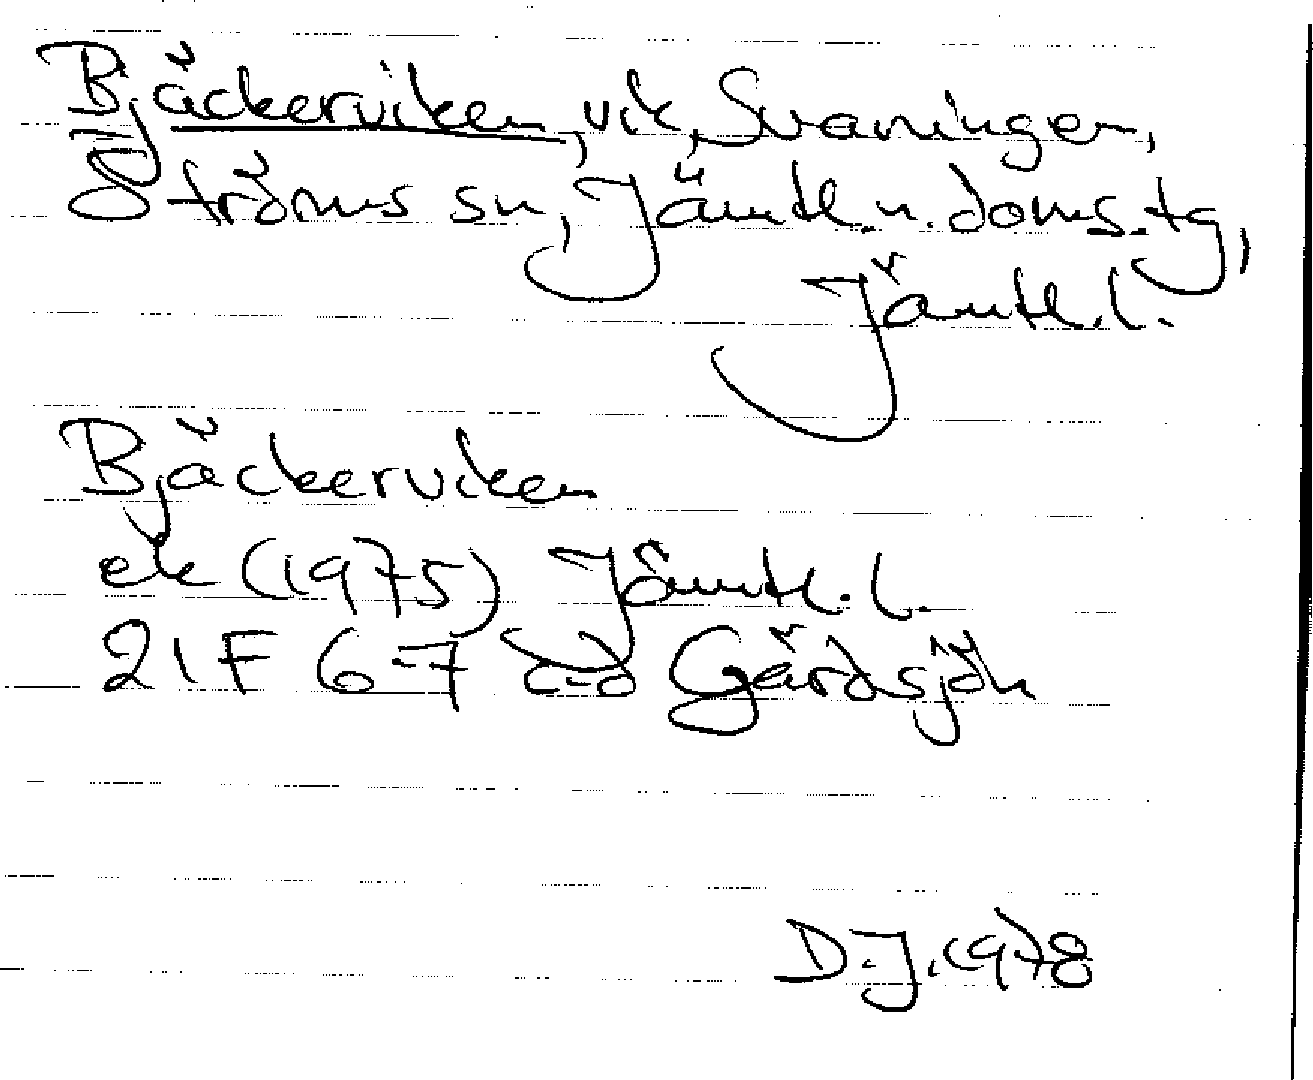 Bjäckerviken, vik, Svaningen,
Ströms sn, Jämtl. n. doms.tg,
Jämtl. l.
Bjäckerviken
ek (1975) Jämtl. l.
21F 6-7 c-d Gärdsjön
D.J. 1978